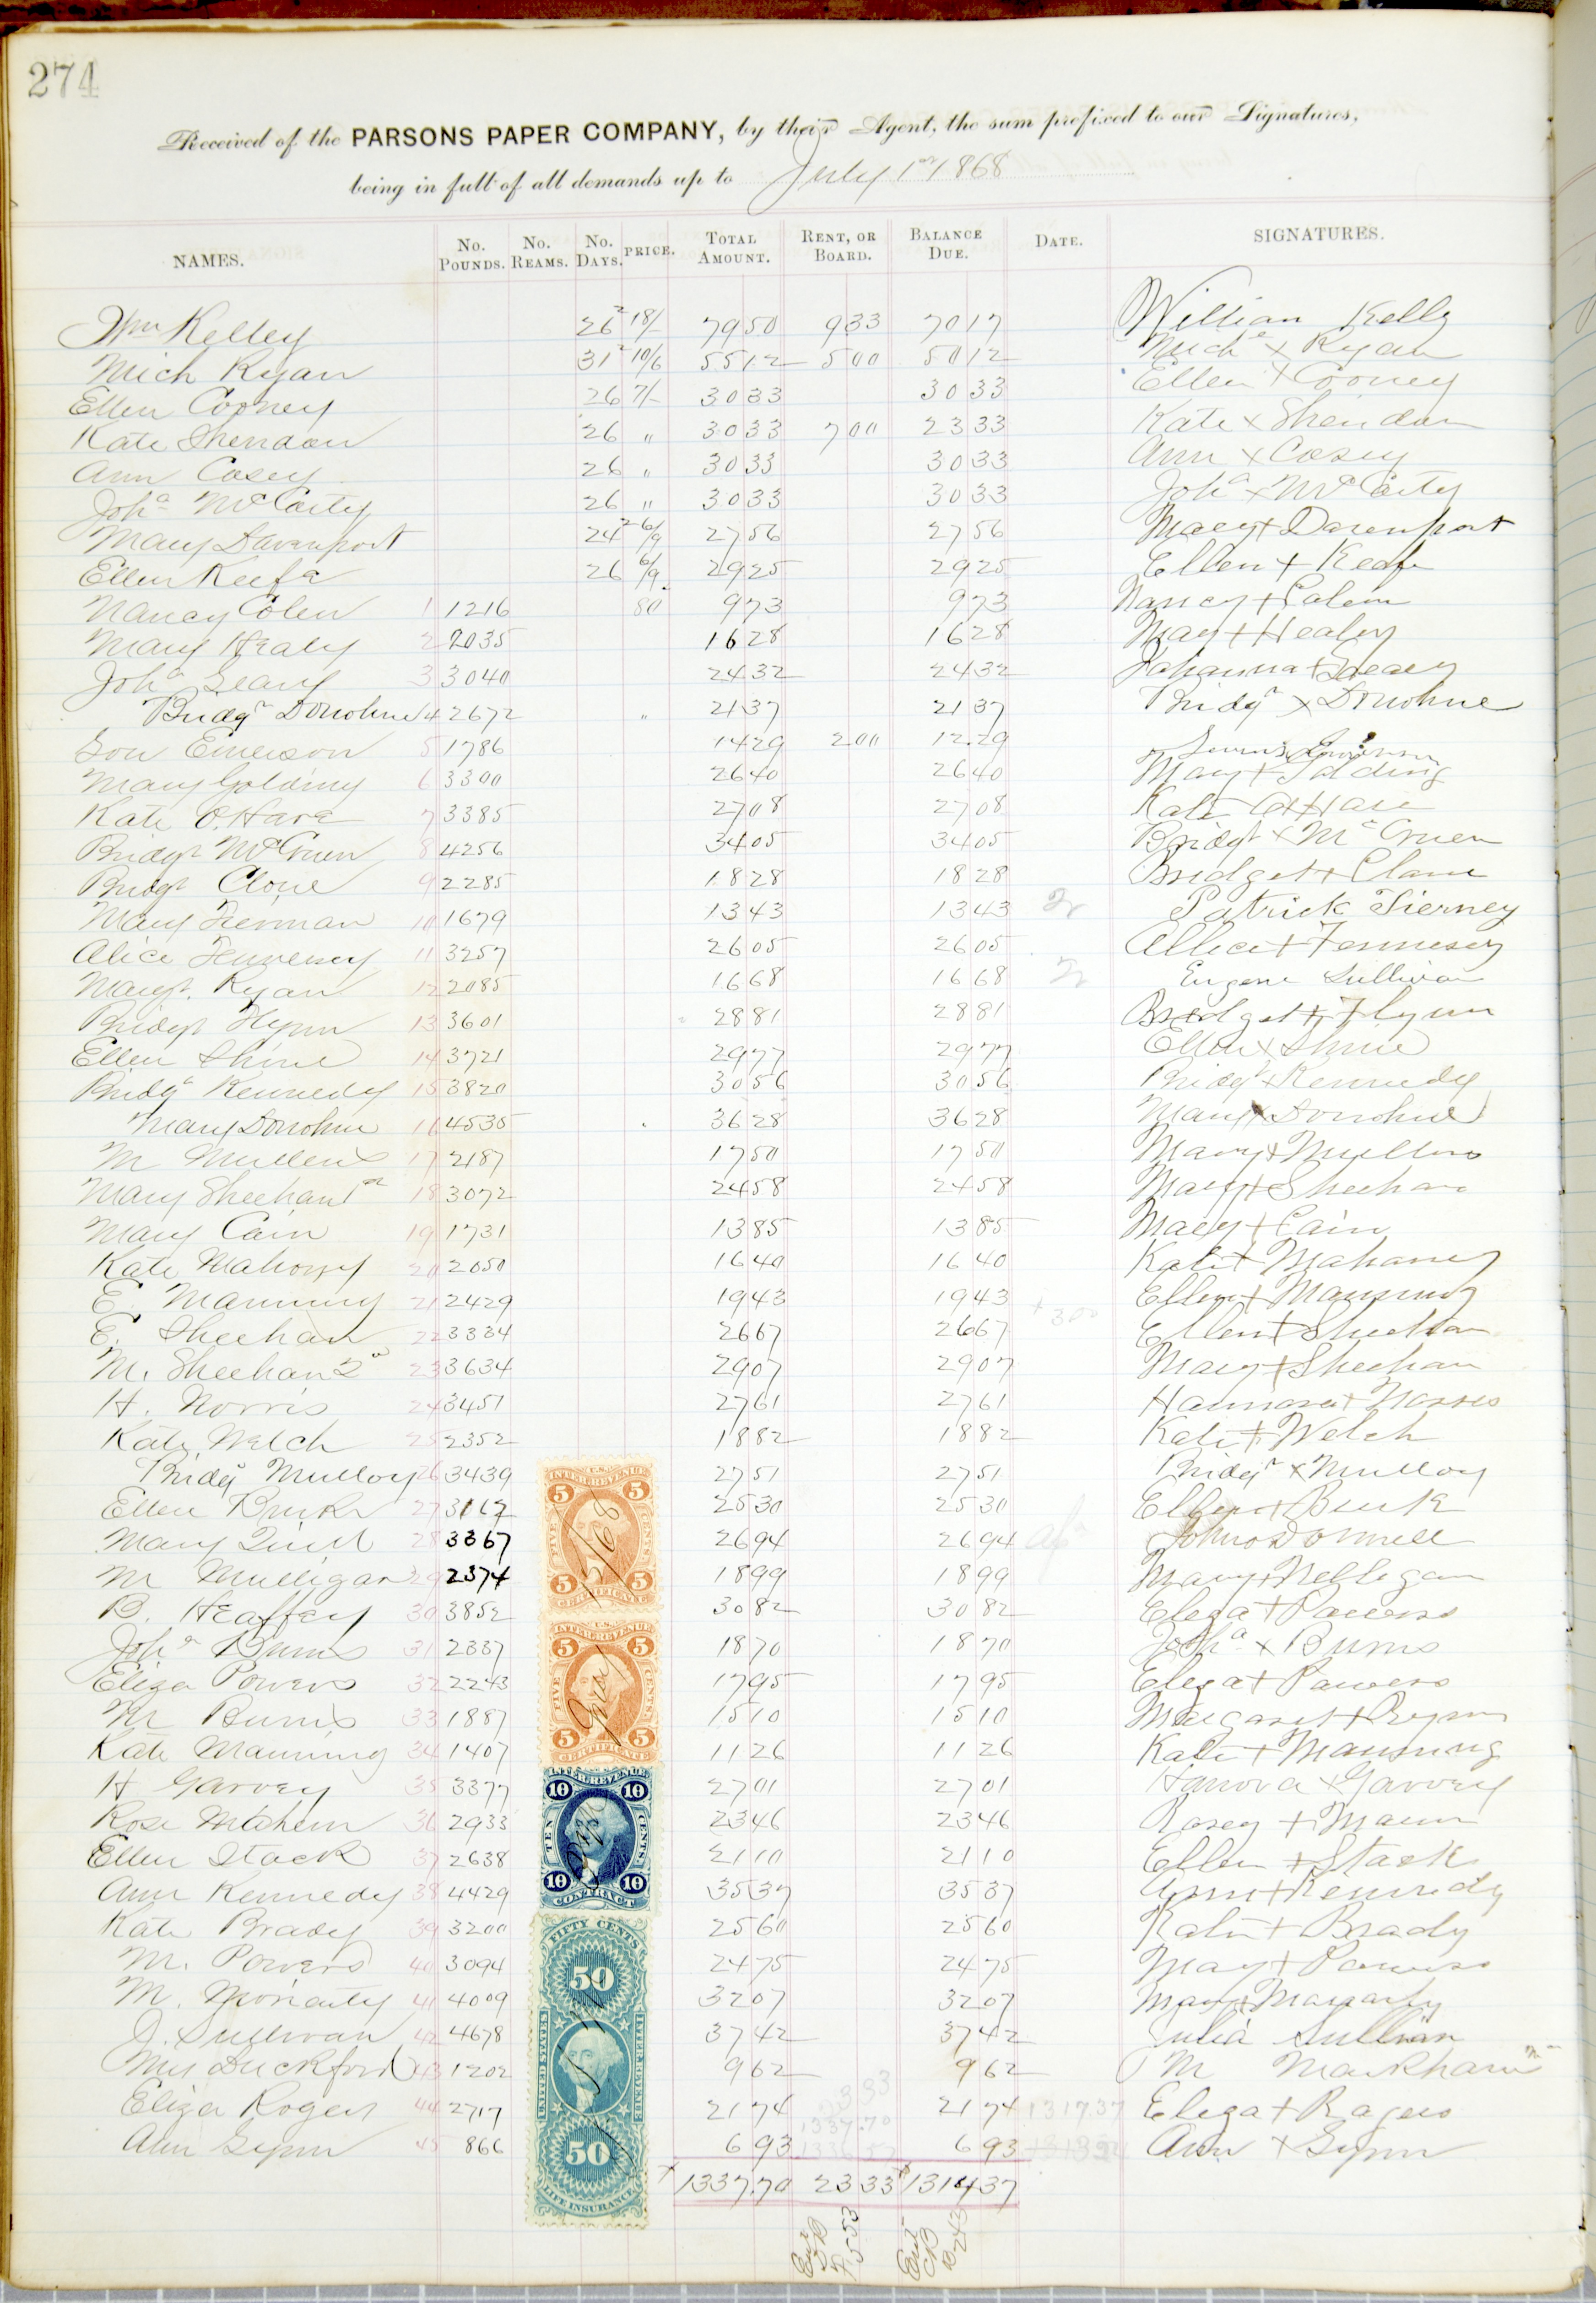 274
Received of the PARSONS PAPER COMPANY, by their Agent, the sum prefixed to our Signatures,
being in full of all demands up to July 1st 1868
NAMES. No. Pounds. No. Reams. No. Days. PRICE. Total Amount. Rent, or Board. Balance Due. Date. SIGNATURES.
Wm Kelley 26 2 18/- 7950 933 7017 William Kelly
Mich Ryan 31 2 10/6 5512 500 5012 Mich x Ryan
Ellen Cooney 26 7/- 3033 3033 Ellen + Cooney
Kate Sheridan 26 " 3033 700 2333 Kate x Sheridan
Ann Casey 26 " 3033 3033 Ann x Casey
Joha McCarty 26 " 3033 3033 Joha x McCarty
Mary Davenport 24 2 6/9 2756 2756 Mary + Davenport
Ellen Keefe 26 6/9 2925 2925 Ellen + Keafe
Nancy Colen 1 1216 80 973 973 Nancy + Calem
Mary Healy 2 2035 1628 1628 Mary + Healey
Joha Leary 3 3040 2432 2432 Johanna + Leary
Bridgt Donohue 4 2672 " 2137 2137 Bridgt x Donohue
Lou Emerson 5 1786 1429 200 1229
Mary Golding 6 3300 2640 2640 Mary + Golding
Kate O.Hara 7 3385 2708 2708 Kate O+Hare
Bridgt McGruen 8 4256 3405 3405 Bridgt x McGruen
Bridgt Clone 9 2285 1828 1828 Bridget + Clane
Mary Tierman 10 1679 1343 1343 Patrick Tierney
Alice Fennessy 11 3257 2605 2605 Allice + Fennesey
Margt. Ryan 12 2085 1668 1668 Eugene Sullivan
Bridgt Flynn 13 3601 2881 2881 Bridget + Flynn
Ellen Shine 14 3721 2977 2977 Ellen x Shine
Bridgt Kennedy 15 3820 3056 3056 Bridgt x Kennedy
Mary Donohue 16 4535 3628 3628 Mary x Donohue
M Mullens 17 2187 1750 1750 Mary x Mullens
Mary Sheehan 1st 18 3072 2458 2458 Mary + Sheehan
Mary Cain 19 1731 1385 1385 Mary + Cain
Kate Mahony 20 2050 1640 1640 Kate + Mahaney
E. Manning 21 2429 1943 1943 +300 Ellen + Manning
E. Sheehan 22 3334 2667 2667 Ellen + Sheehan
M. Sheehan 2d 23 3634 2907 2907 Mary + Sheehan
H. Norris 24 3451 2761 2761 Hannora + Norris
Kate Welch 25 2352 1882 1882 Kate + Welch
Bridgt Mulloy 26 3439 2751 2751 Bridgt x Mulloy
Ellen Burke 27 3162 2530 2530 Ellen + Burk
Mary Quill 28 3367 2694 2694 John O Donnell
M Mulligan 29 2374 1899 1899 Mary + Nellegan
B. Heaffey 30 3852 3082 3082 Eleza + Powers
Joha Burns 31 2337 1870 1870 Joha x Burns
Eliza Powers 32 2243 1795 1795 Eleza + Powers
M Burns 33 1887 1510 1510 Margaret + Byrns
Kate Manning 34 1407 1126 1126 Kate + Manning
H Garvey 35 3377 2701 2701 Hanora x Garvey
Rose 36 2933 2346 2346 Rosey + Mann
Ellen Stack 37 2638 2110 2110 Ellen + Stack
Ann Kennedy 38 4429 3537 3537 Ann + Kennedy
Kate Brady 39 3200 2560 2560 Kate + Brady
M. Powers 40 3094 2475 2475 Mary + Powers
M. Moriarty 41 4009 3207 3207 Mary + Mararty
J. Sullivan 42 4678 3742 3742 Julia Sullivan
Mrs Duckford 43 1202 962 962 M Markham
Eliza Rogers 44 2717 2174 2174 131737 Eleza + Rogers
Ann Lynn 45 866 693 693 Ann x Lynn
1337.70 2333 131437
U.S. INTER. REVENUE 5 5 FIVE CENTS CERTIFICATE 5 5
INTER. REVENUE 5 5 FIVE CENTS CERTIFICATE 5 5
INTER. REVENUE 10 10 TEN CENTS CONTRACT 10 10
FIFTY CENTS 50 UNITED STATES INTER REVENUE 50 LIFE INSURANCE